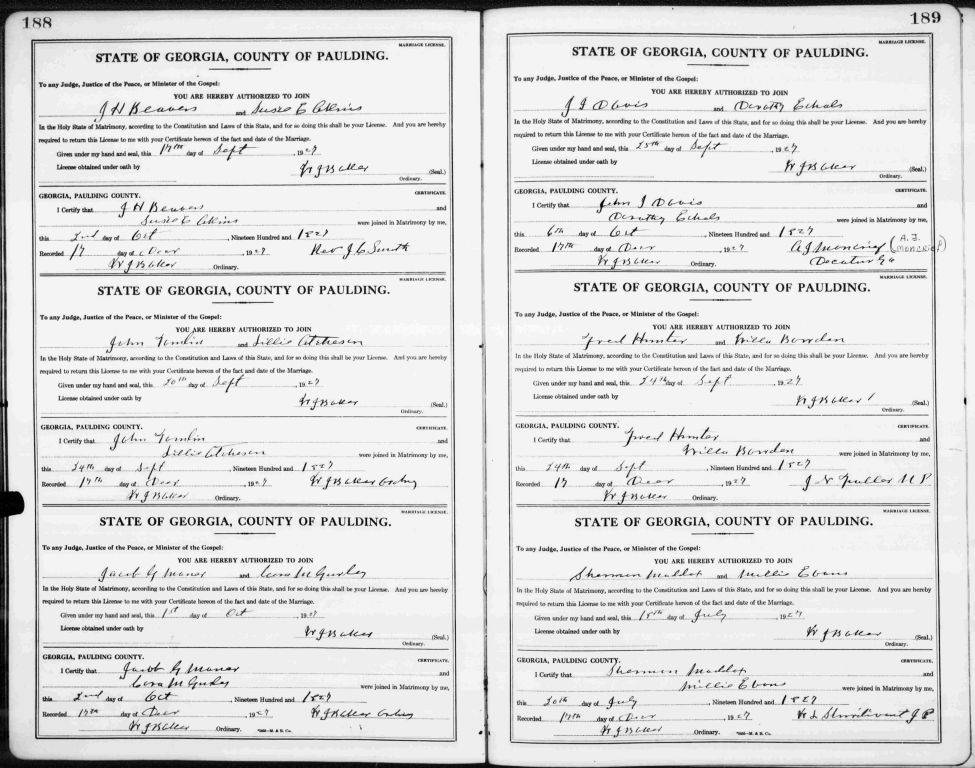 188
MARRIAGE LICENSE.
STATE OF GEORGIA, COUNTY OF PAULDING.
To any Judge, Justice of the Peace, or Minister of the Gospel:
YOU ARE HEREBY AUTHORIZED TO JOIN
J H Beavers and Susie E Akins
In the Holy State of Matrimony, according to the Constitution and Laws of this State, and for so doing this shall be your License. And you are hereby
required to return this License to me with your Certificate hereon of the fact and date of the Marriage.
Given under my hand and seal, this 17th day of Sept , 1927
License obtained under oath by W J Baker (Seal.)
Ordinary.
GEORGIA, PAULDING COUNTY. CERTIFICATE.
I Certify that J H Beavers and
Susie E Akins were joined in Matrimony by me,
this 2nd day of Oct , Nineteen Hundred and 1927
Recorded 17 day of Decr , 1927 Rev J C Smith
W J Baker Ordinary.
MARRIAGE LICENSE.
STATE OF GEORGIA, COUNTY OF PAULDING.
To any Judge, Justice of the Peace, or Minister of the Gospel:
YOU ARE HEREBY AUTHORIZED TO JOIN
John Tomlin and Lillie Atcheson
In the Holy State of Matrimony, according to the Constitution and Laws of this State, and for so doing this shall be your License. And you are hereby
required to return this License to me with your Certificate hereon of the fact and date of the Marriage.
Given under my hand and seal, this 20th day of Sept , 1927
License obtained under oath by W J Baker (Seal.)
Ordinary.
GEORGIA, PAULDING COUNTY. CERTIFICATE.
I Certify that John Tomlin and
Lillie Atcheson were joined in Matrimony by me,
this 24th day of Sept , Nineteen Hundred and 1927
Recorded 17th day of Decr , 1927 W J Baker Ordny
W J Baker Ordinary.
MARRIAGE LICENSE.
STATE OF GEORGIA, COUNTY OF PAULDING.
To any Judge, Justice of the Peace, or Minister of the Gospel:
YOU ARE HEREBY AUTHORIZED TO JOIN
Jacob G Maner and Cora M Gurley
In the Holy State of Matrimony, according to the Constitution and Laws of this State, and for so doing this shall be your License. And you are hereby
required to return this License to me with your Certificate hereon of the fact and date of the Marriage.
Given under my hand and seal, this 1st day of Oct , 1927
License obtained under oath by W J Baker (Seal.)
Ordinary.
GEORGIA, PAULDING COUNTY. CERTIFICATE.
I Certify that Jacob G Maner and
Cora M Gurley were joined in Matrimony by me,
this 2nd day of Oct , Nineteen Hundred and 1927
Recorded 17th day of Decr , 1927 W J Baker Ordny
W J Baker Ordinary. M. & B. Co.
189
MARRIAGE LICENSE.
STATE OF GEORGIA, COUNTY OF PAULDING.
To any Judge, Justice of the Peace, or Minister of the Gospel:
YOU ARE HEREBY AUTHORIZED TO JOIN
J I Davis and Dorothy Echols
In the Holy State of Matrimony, according to the Constitution and Laws of this State, and for so doing this shall be your License. And you are hereby
required to return this License to me with your Certificate hereon of the fact and date of the Marriage.
Given under my hand and seal, this 25th day of Sept , 1927
License obtained under oath by W J Baker (Seal.)
Ordinary.
GEORGIA, PAULDING COUNTY. CERTIFICATE.
I Certify that John I Davis and
Dorothy Echols were joined in Matrimony by me,
this 6th day of Oct , Nineteen Hundred and 1927
Recorded 17th day of Decr , 1927 A J Moncrief (A. J. MONCRIEF)
W J Baker Ordinary. Decatur Ga
MARRIAGE LICENSE.
STATE OF GEORGIA, COUNTY OF PAULDING.
To any Judge, Justice of the Peace, or Minister of the Gospel:
YOU ARE HEREBY AUTHORIZED TO JOIN
Fred Hunter and Willa Bowden
In the Holy State of Matrimony, according to the Constitution and Laws of this State, and for so doing this shall be your License. And you are hereby
required to return this License to me with your Certificate hereon of the fact and date of the Marriage.
Given under my hand and seal, this 24th day of Sept , 1927
License obtained under oath by W J Baker (Seal.)
Ordinary.
GEORGIA, PAULDING COUNTY. CERTIFICATE.
I Certify that Fred Hunter and
Willa Bowden were joined in Matrimony by me,
this 24th day of Sept , Nineteen Hundred and 1927
Recorded 17 day of Decr , 1927 Fuller N P
W J Baker Ordinary.
MARRIAGE LICENSE.
STATE OF GEORGIA, COUNTY OF PAULDING.
To any Judge, Justice of the Peace, or Minister of the Gospel:
YOU ARE HEREBY AUTHORIZED TO JOIN
Sherman Maddox and Millie Evans
In the Holy State of Matrimony, according to the Constitution and Laws of this State, and for so doing this shall be your License. And you are hereby
required to return this License to me with your Certificate hereon of the fact and date of the Marriage.
Given under my hand and seal, this 18th day of July , 1927
License obtained under oath by W J Baker (Seal.)
Ordinary.
GEORGIA, PAULDING COUNTY. CERTIFICATE.
I Certify that Sherman Maddox and
Millie Evans were joined in Matrimony by me,
this 20th day of July , Nineteen Hundred and 1927
Recorded 17th day of Decr , 1927 Sturdivant J P
W J Baker Ordinary. M. & B. Co.